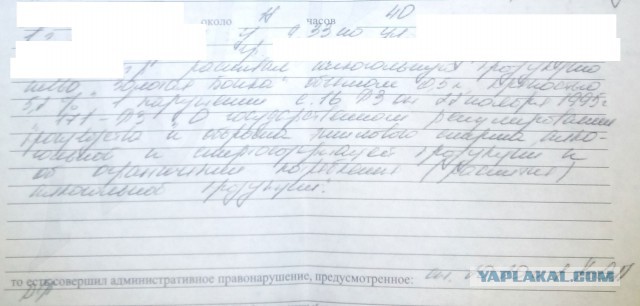 около 11 часов 40
у д 33 по ул
распивал алкогольную продукцию
пиво "Золотая бочка" объемом 0,5 л. крепостью
5,2 % в нарушении с. 16 ФЗ от 22 ноября 1995г
171-ФЗ "О государственном регулировании
производства и оборота этилового спирта, алко-
гольной и спиртосодержащей продукции и
об ограничении потребления (распития)
алкогольной продукции".
то есть совершил административное правонарушение, предусмотренное: ст. 20.20
РФ
YAPLAKAL.COM